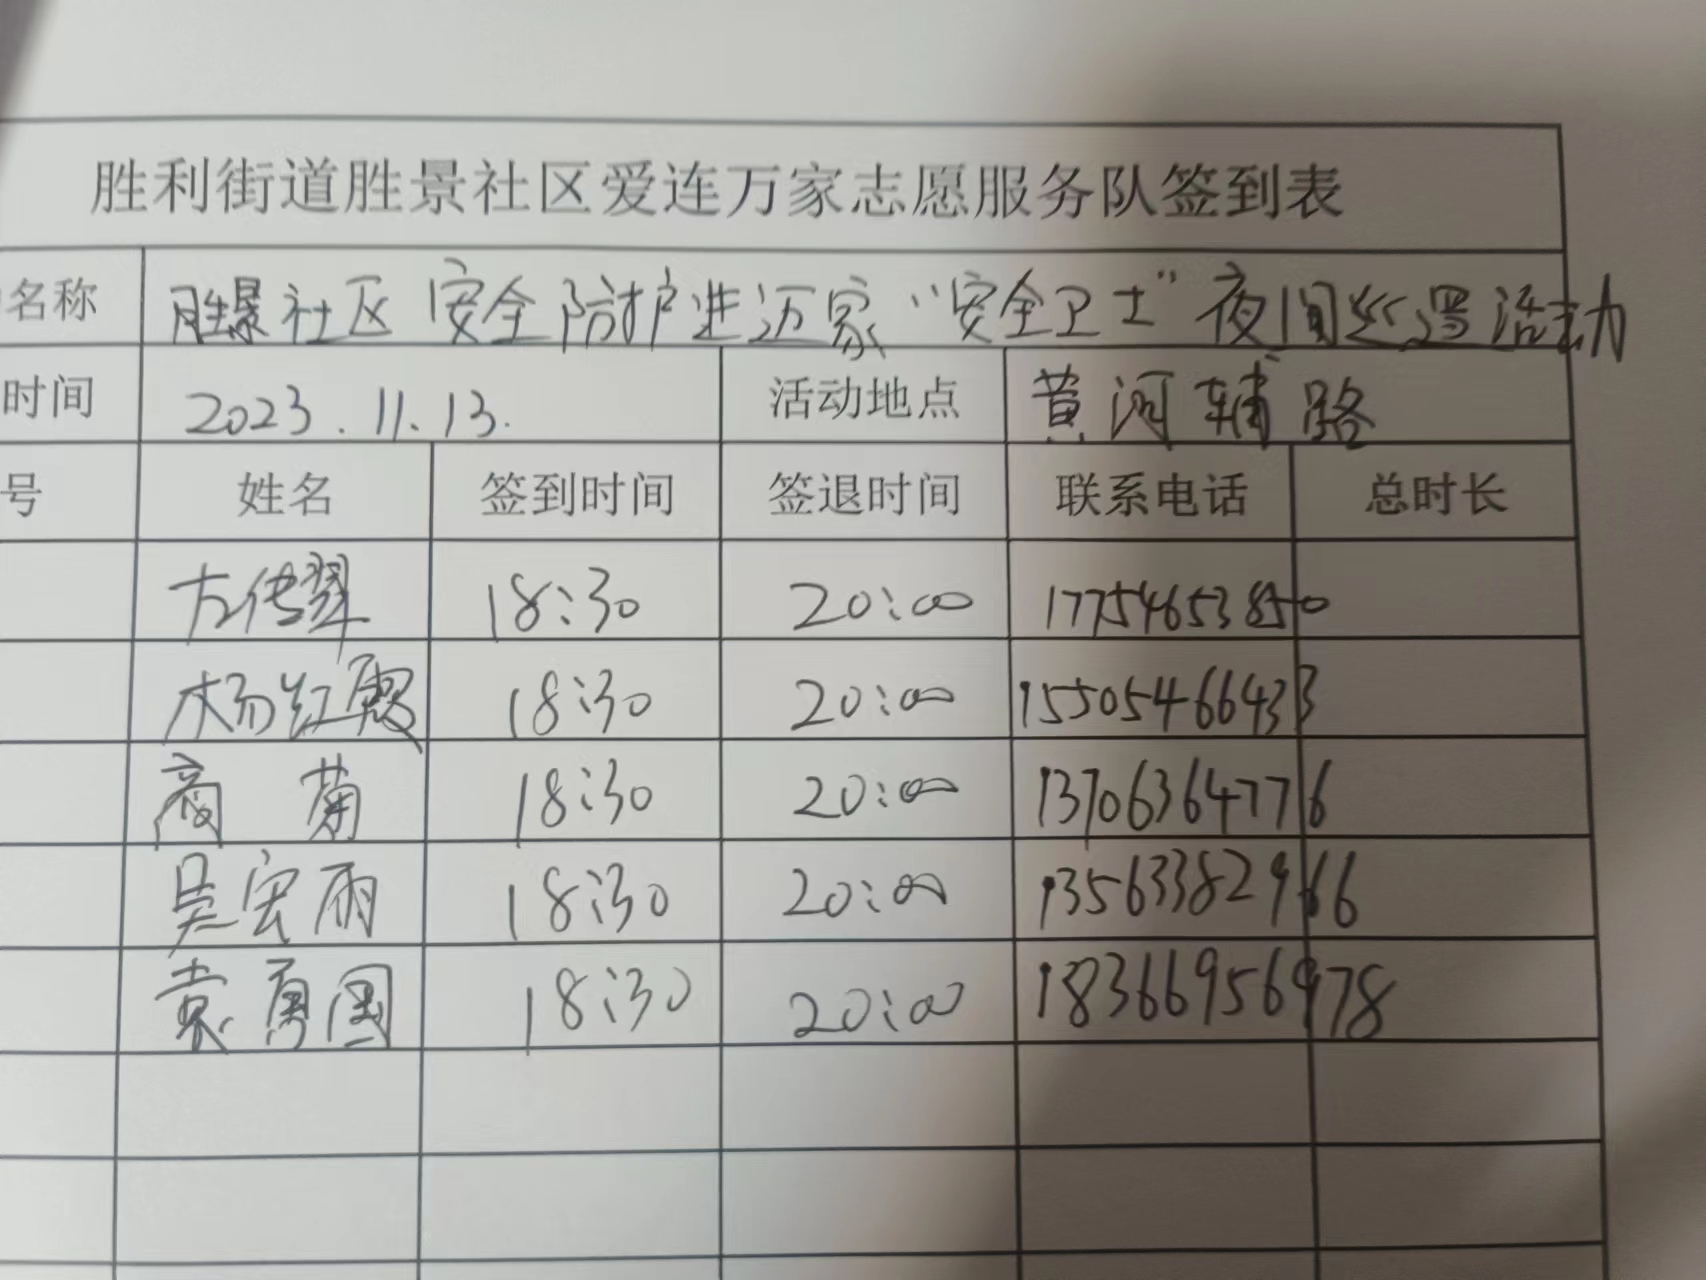 胜利街道胜景社区爱连万家志愿服务队签到表
名称 胜景社区安全防护进万家“安全卫士”夜间巡逻活动
时间 2023.11.13. 活动地点 黄河辅路
号 姓名 签到时间 签退时间 联系电话 总时长
方传翠 18:30 20:00 17754653850
杨红霞 18:30 20:00 15505466433
商菊 18:30 20:00 13706364776
吴宏雨 18:30 20:00 13563382966
袁勇国 18:30 20:00 18366956978